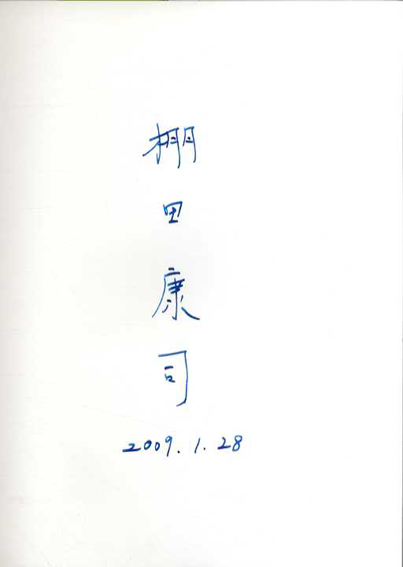 棚田康司
2009.1.28